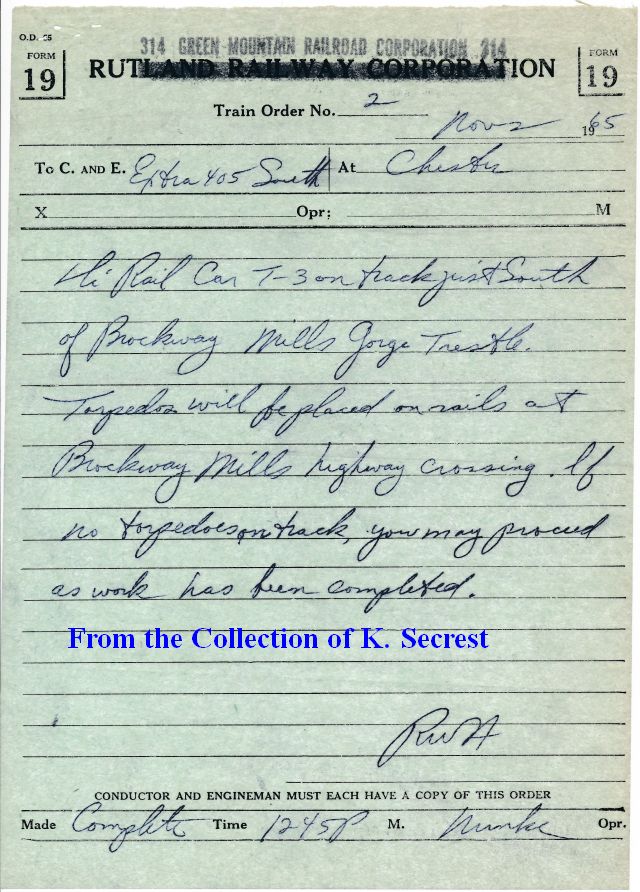 O.D. 25
314 GREEN MOUNTAIN RAILROAD CORPORATION 314
FORM 19 RUTLAND RAILWAY CORPORATION FORM 19
Train Order No. 2
Nov 2 1965
To C. AND E. Extra 405 South At Chester
X Opr: M
Hi Rail Car T-3 on track just South
of Brockway Mills Gorge Trestle.
Torpedos will be placed on rails at
Brockway Mills highway crossing. If
no torpedoes on track, you may proceed
as work has been completed.
From the Collection of K. Secrest
RWH
CONDUCTOR AND ENGINEMAN MUST EACH HAVE A COPY OF THIS ORDER
Made Complete Time 1245P M. Opr.